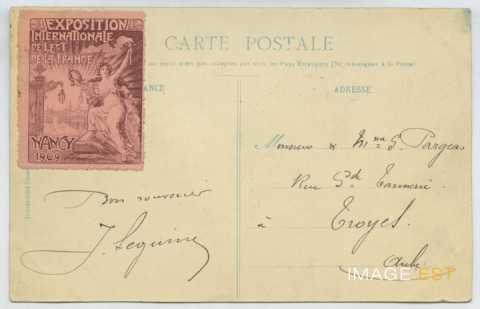 EXPOSITION
INTERNATIONALE
DE L'EST
DE LA FRANCE
NANCY
1909
CARTE POSTALE
ANCE
ADRESSE
Bon souvenir
J. Seguin
Monsieur & Mme G. Pargeas
Rue Gde Tannerie
à Troyes.
Aube
IMAGE EST